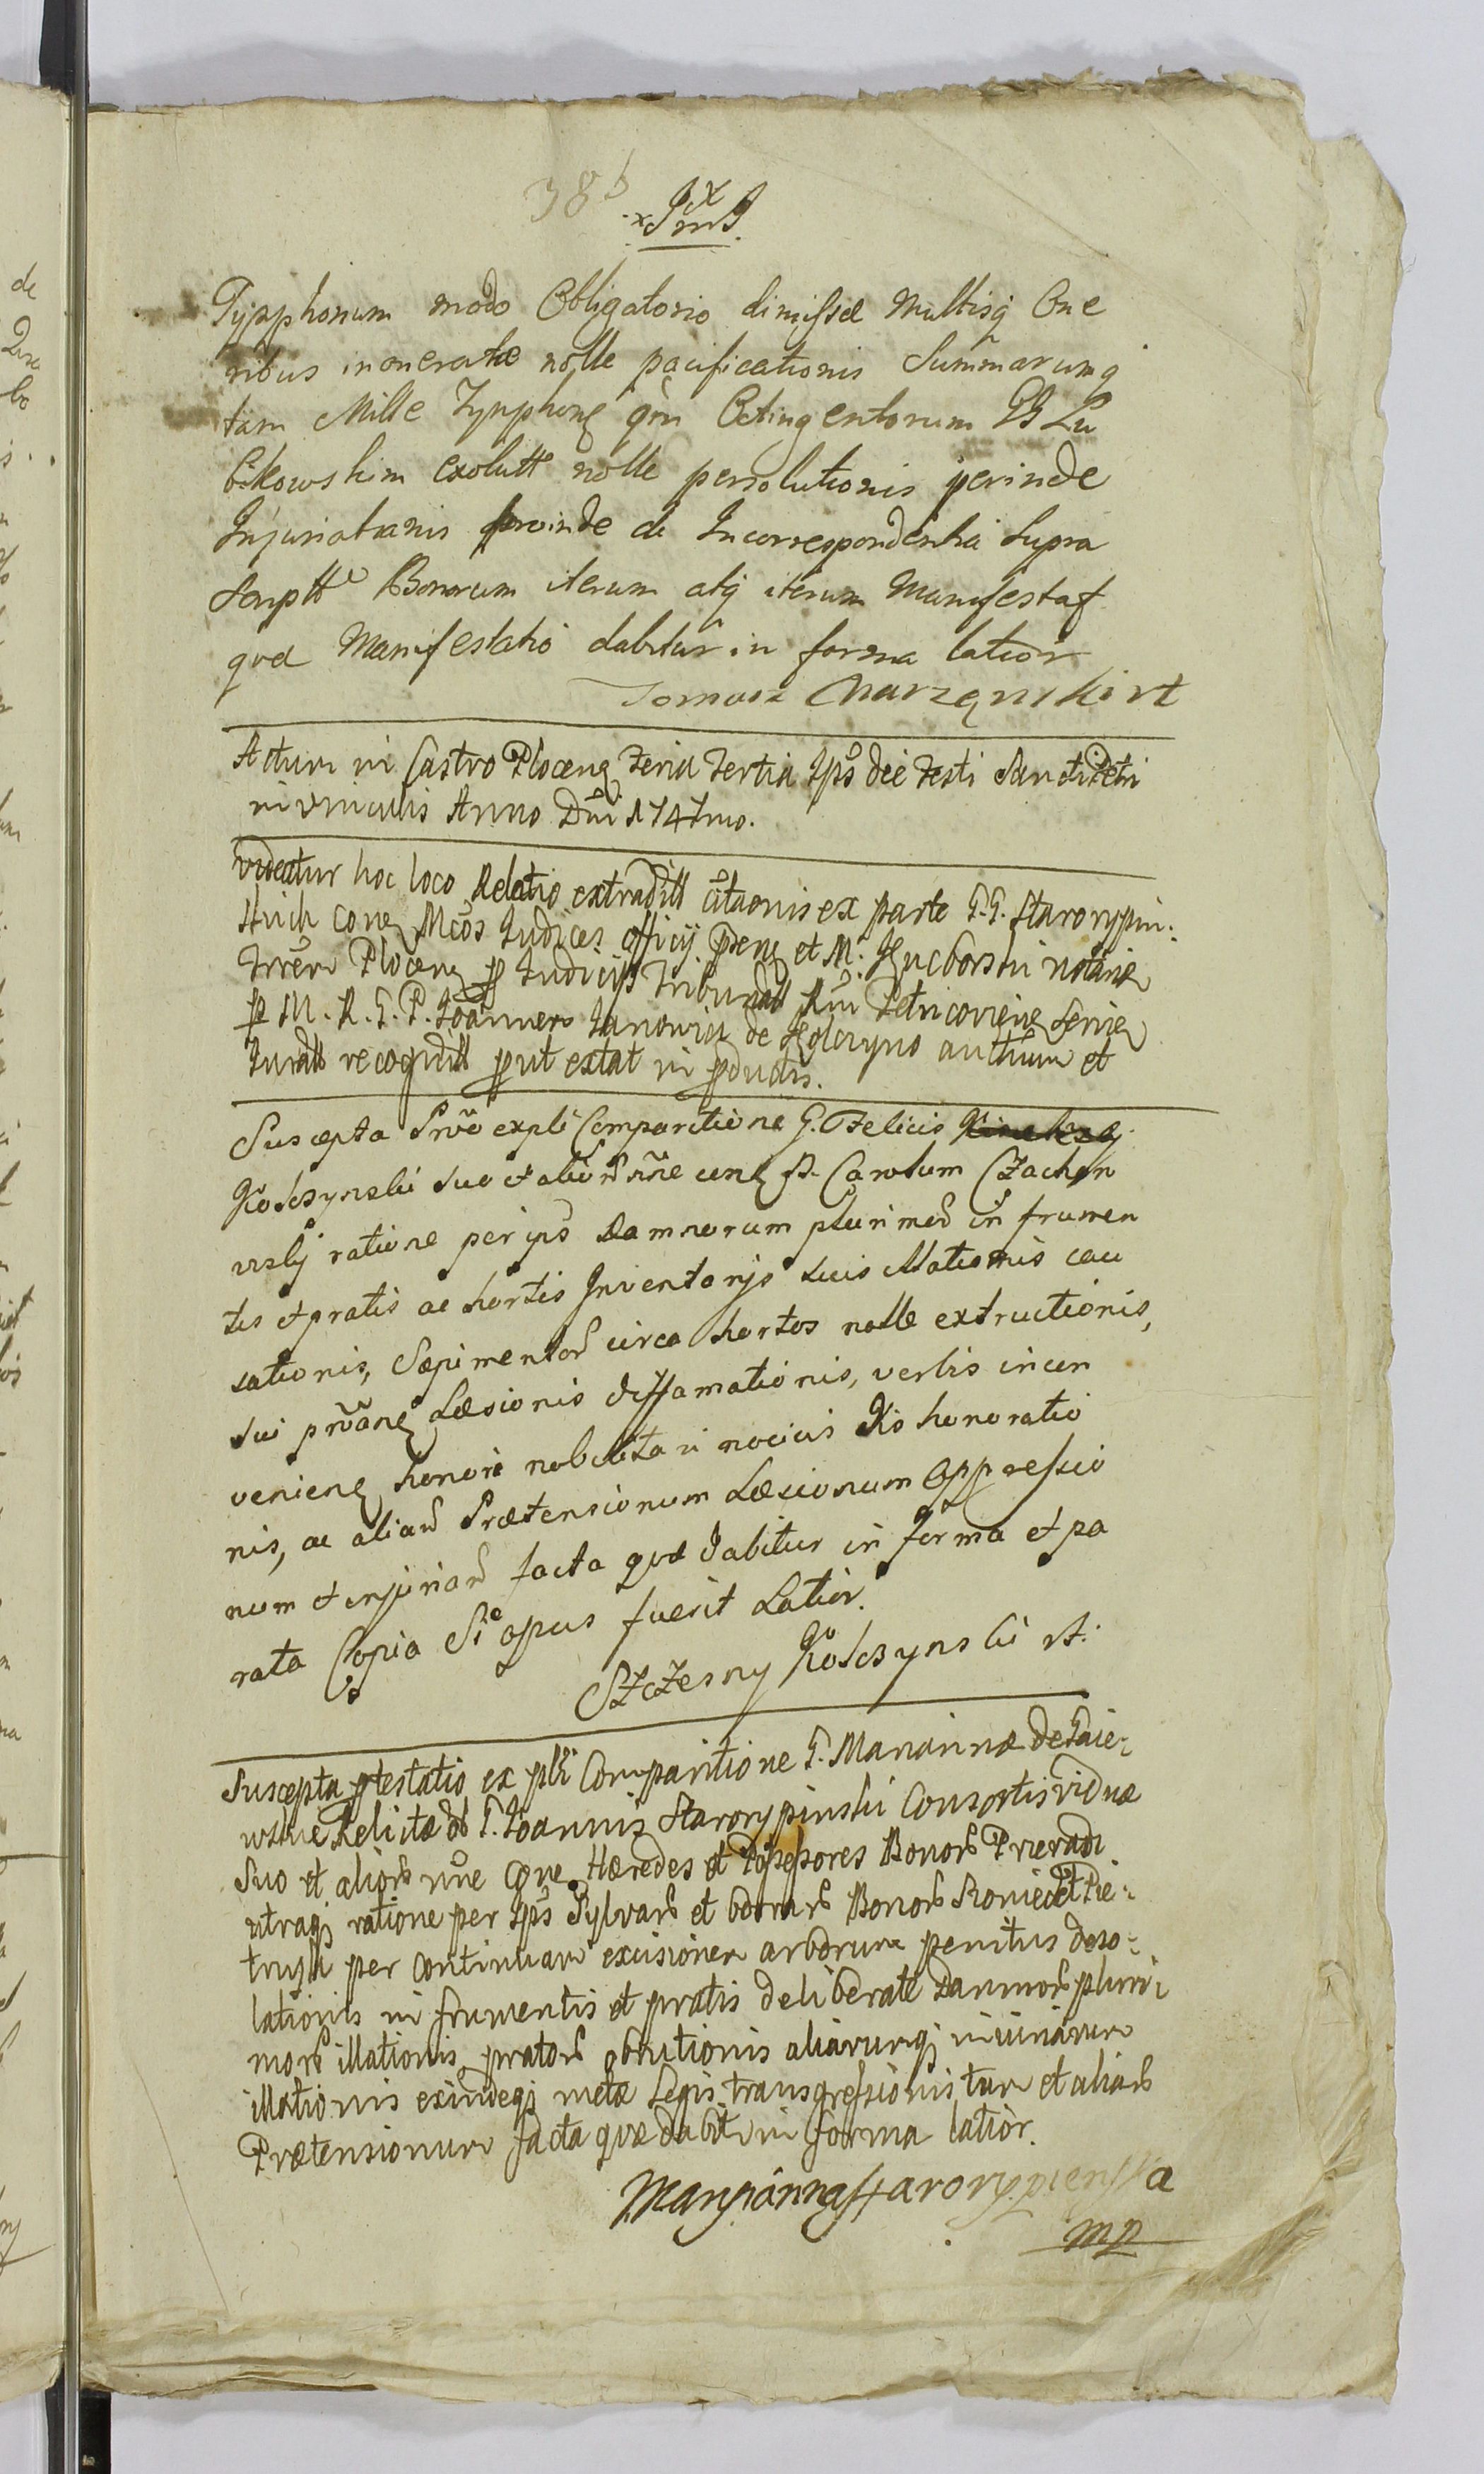 38b
JmJ
Typphonum modo Obligatorio dimissæ Multisq One
ribus inoneratæ nolle pacificationis Summarumq
tam Mille Tynphonq qm Octingentorum G Lu
bikowskim exolutt nolle persolutionis perinde
Injuriationis proinde de Incorrespondentia Supra
Scriptte Bonorum iterum atq iterum Manifestat
qvæ Manifestatio dabitur in forma latior
Tomasz Charzęnski rt
Actum in Castro Plocenq Feria Tertia Ipso die Festi Sancti Petri
in vinculis Anno Dni 1747mo.
Videatur hoc loco Relatio extraditt citaonis ex parte G.G. Starorypin:
skich conq Mcos Judices officij pnq et M. notariæ
Trrem Plocenq p Judicijs Tribunatt Rni Petricovienq
p M. R. G. P. Joannem Janowicz de authum et
Juratt recognitt put extat in pductis.
Suscepta Prõo expli Comparitione G. Felicis
Kosczynski suo et alior nne conq G. Carolum Czachor
wskj ratione per ips damnorum plurimor in frumen
tis et pratis ac hortis Inventarijs suis Illationis cau
sationis, Sæpimentor circa hortos nolle extructionis,
sui prõanq Læsionis diffamationis, verbis incon
venienq honori nobilitari nocivis dishonoratio
nis, ac aliar Prætensionum Læsionum Oppressio
num et injuriar facta qvæ dabitur in forma et pa
rata Copia Si opus fuerit Latior.
Szczesny Kosczynski rt.
Suscepta ptestatio ex pli Comparitione G. Mariannæ de Gaie-
wskie Relictæ G. Joannis Starorypinski Consortis Viduæ
Suo et alior nne conq Hæredes et Possessores Bonor Pieradz
utraq ratione per Ips Sylvar et borrar Bonor Koniec et Pie-
truszk per continuam excisionem arborum penitus deso-
lationis in frumentis et pratis deliberate damnor pluri
mor illationis prator obrutionis aliarumq iniuriarum
illationis exindeqz metæ Legis transgressionis tum et aliar
Prætensionum facta qvæ dabit in forma latior.
Maryanna Starorypienska
mp